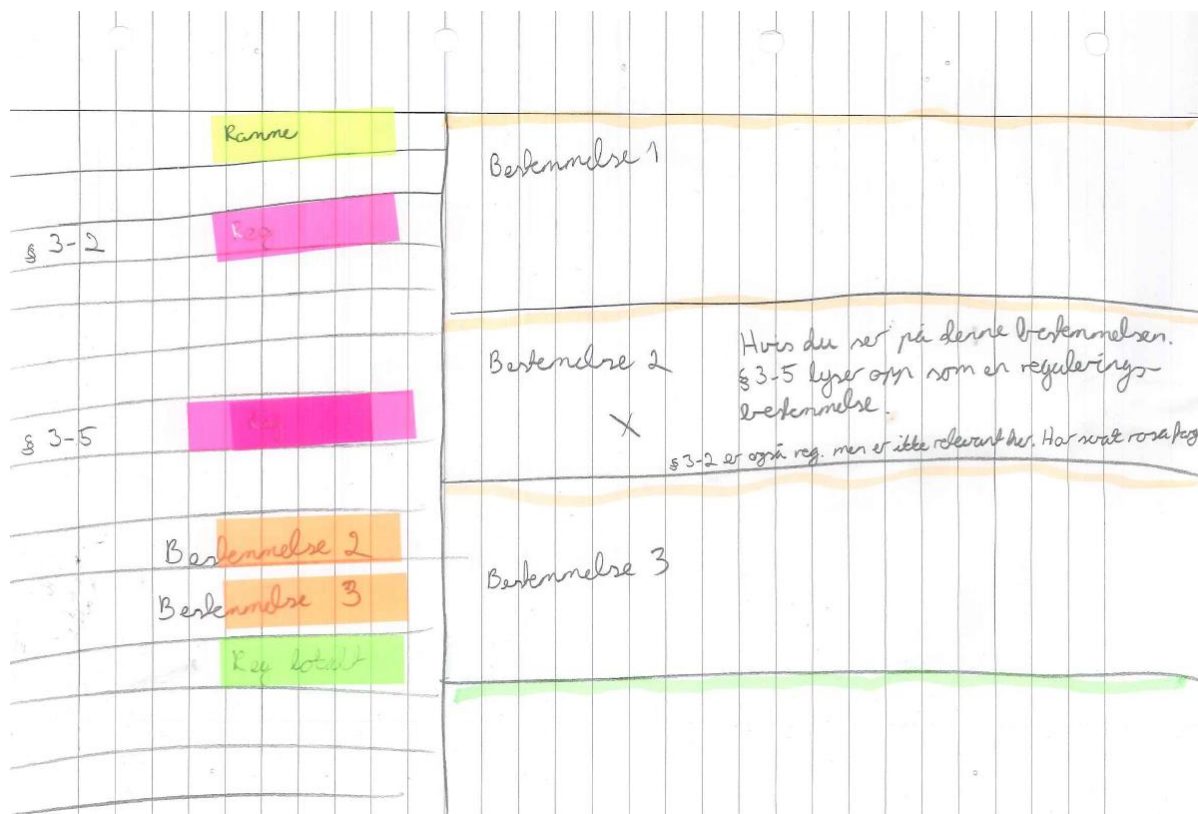 Ramme
§ 3-2
Reg
§ 3-5
Reg
Bestemmelse 2
Bestemmelse 3
Reg totalt
Bestemmelse 1
Bestemelse 2
Hvis du ser på denne bestemmelsen.
§ 3-5 lyser opp som en regulerings-
bestemmelse.
X
§ 3-2 er også reg. men er ikke relevant her. Har svak rosa farg
Bestemmelse 3